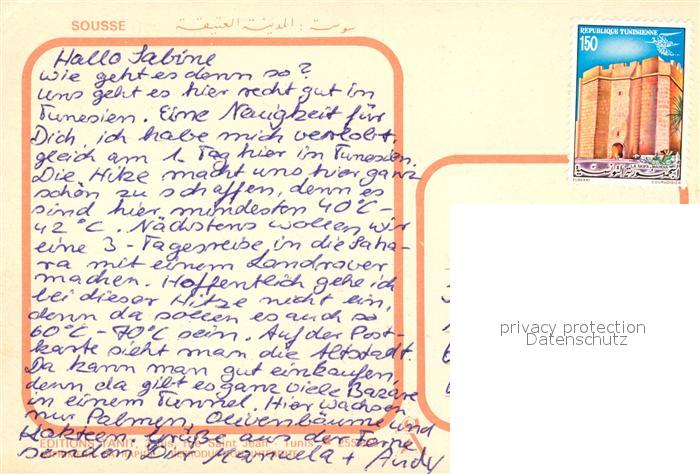 SOUSSE سوسة : المدينة العتيقة
REPUBLIQUE TUNISIENNE
150
Hallo Sabine
wie geht es denn so?
uns geht es hier recht gut in
Tunesien. Eine Neuigkeit für
Dich, ich habe mich verlobt,
gleich am 1. Tag hier in Tunesien.
Die Hitze macht uns hier ganz
schön zu schaffen, denn es
sind hier mindesten 40°C -
42°C. Nächstens wollen wir
eine 3-Tagesreise in die Saha-
ra mit einem Landrover
machen. Hoffentlich gehe ich
bei dieser Hitze nicht ein,
denn da sollen es auch so
60°C - 70°C sein. Auf der Post-
karte sieht man die Altstadt.
Da kann man gut einkaufen,
denn da gibt es ganz viele Bazare
in einem Tunnel. Hier wachsen
nur Palmen, Olivenbäume und
Kakteen. Grüße aus der Ferne
senden Dir + Andy
EDITIONS TANIT, Rue Saint Jean - Tunis
privacy protection
Datenschutz